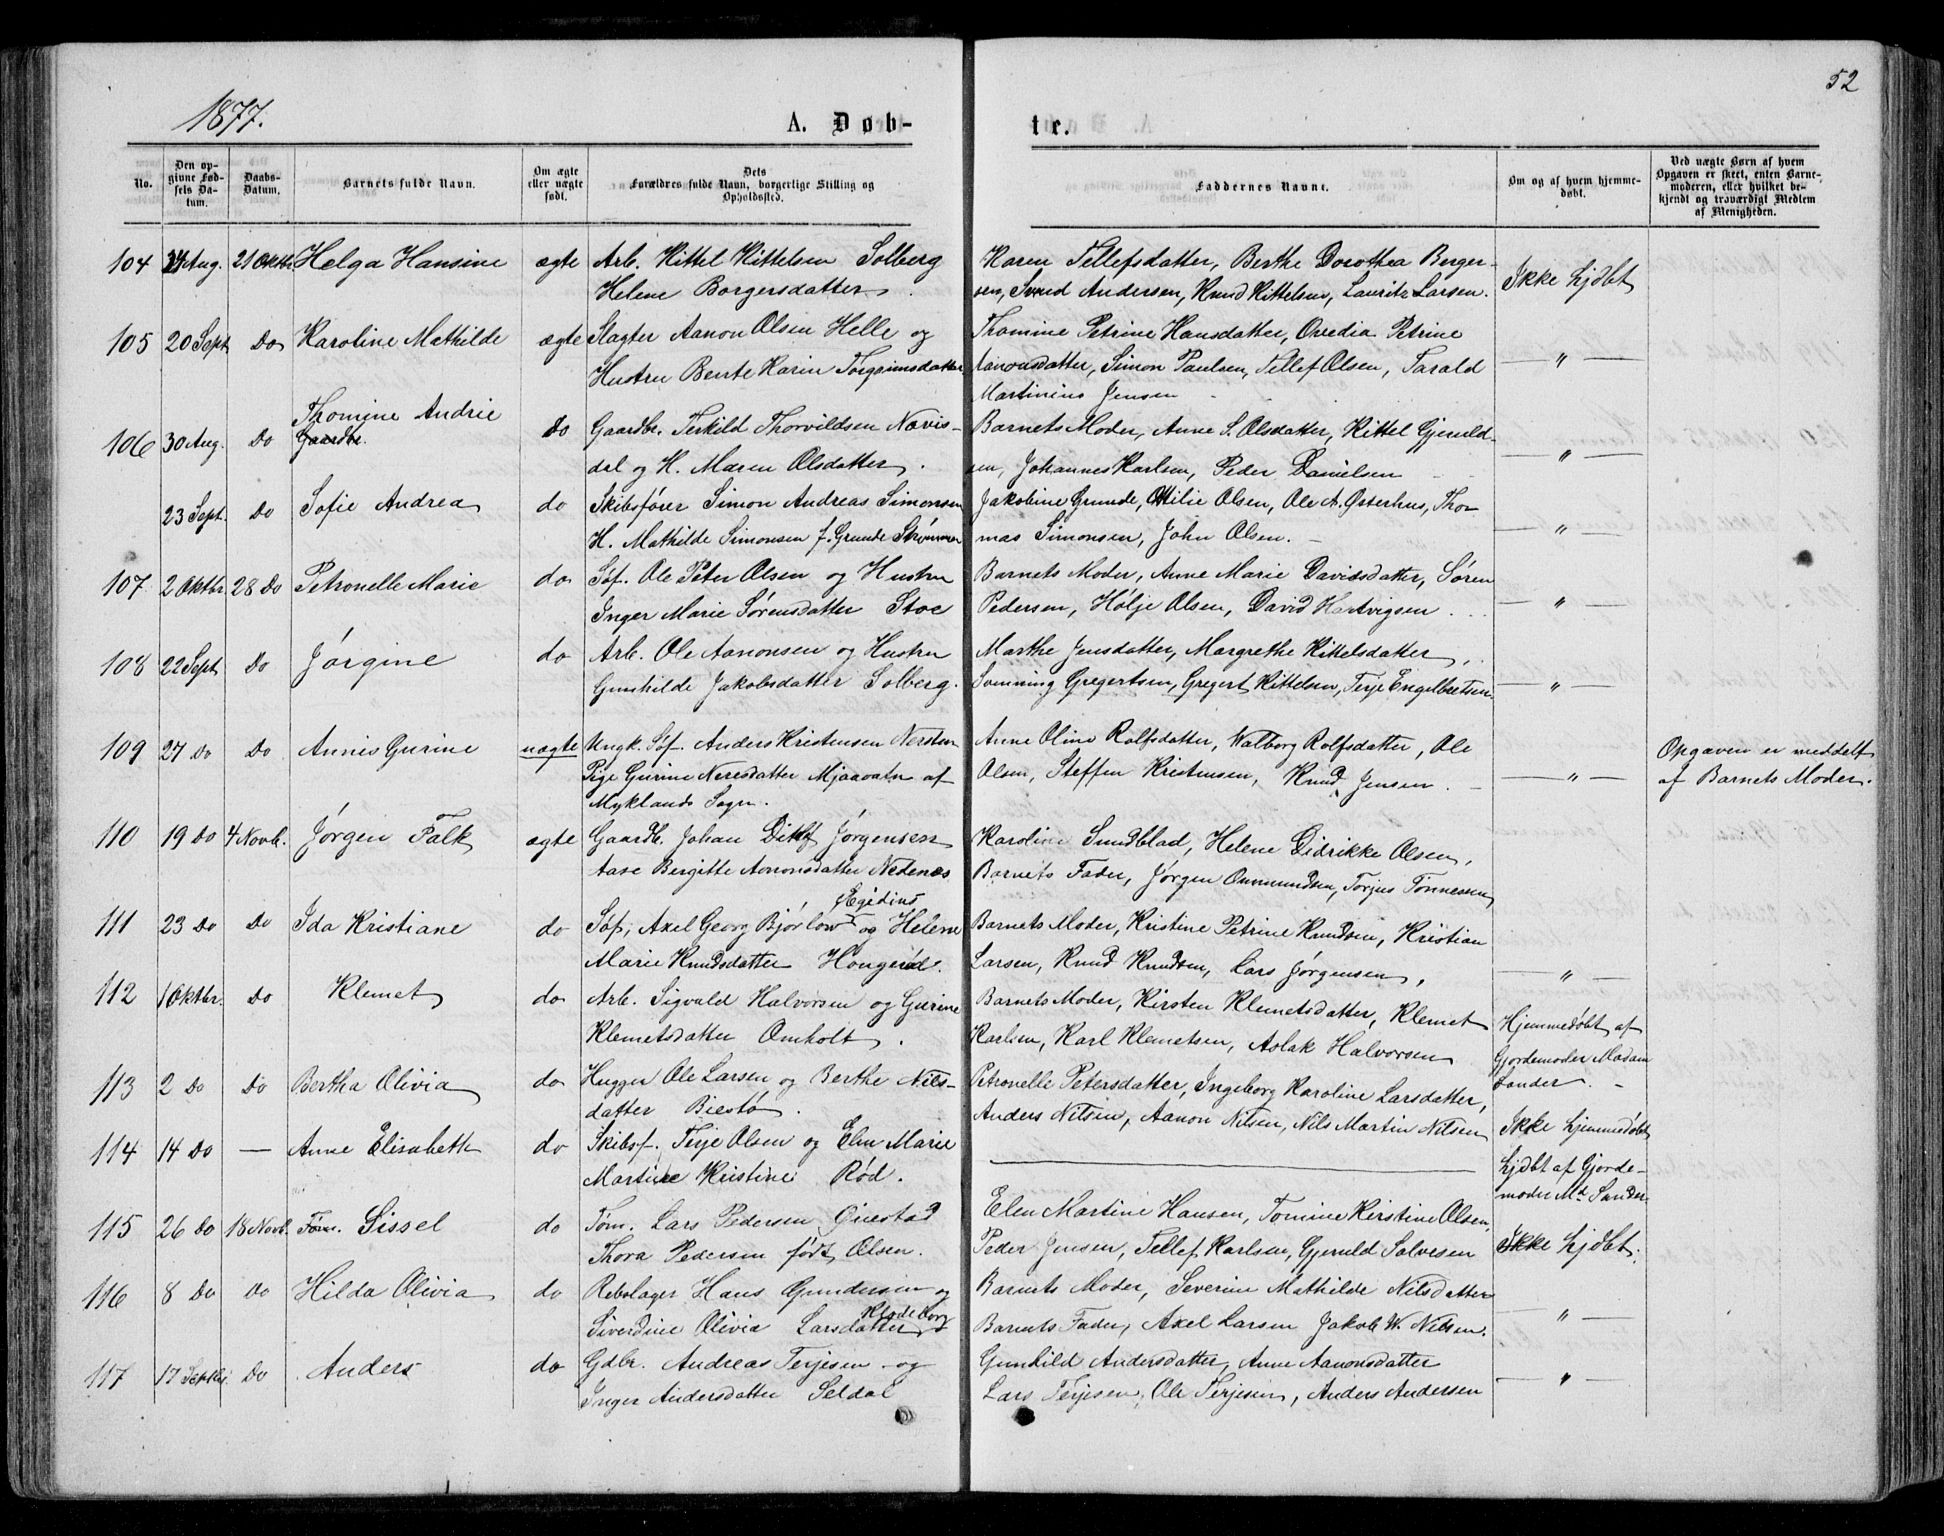 1877.
A. Døb-
te.
52
No.
Den opgivne Fødsels Datum.
Daabs-Datum.
Barnets fulde Navn.
Om ægte eller uægte født.
Dets Forældres fulde Navn, borgerlige Stilling og Opholdssted.
Faddernes Navne.
Om og af hvem hjemmedøbt.
Ved uægte Børn af hvem Opgaven er skeet, enten Barnemoderen, eller hvilket bekjendt og troværdigt Medlem af Menigheden.
104 Aug. 21 Oktbr Helga Hansine ægte Arb. Kittel Kittelsen Solberg
Helene Borgersdatter.
Karen Tellefsdatter, Berthe Dorothea Berger-
sen, Svend Andersen, Knud Kittelsen, Lauritz Larsen. Ikke hjdbt
105 20 Sept Do Karoline Mathilde ægte Slagter Aanon Olsen Helle og
Hustru Bente Karin Torgrimsdatter
Thomine Petrine Hansdatter, Ovedia Petrine
Aanonsdatter, Simon Paulsen, Tellef Olsen, Tarald — " —
Martinius Jensen
Thomine Andrie
106 30 Aug. Do Gaardbr. Do Gaardbr. Terkild Thorvildsen Nævis-
dal og H. Maren Olsdatter.
Barnets Moder, Anne S. Olsdatter, Kittel Gjeruld-
sen, Johannes Karlsen, Peder Danielsen — " —
23 Sept. Do Sofie Andrea do Skibsfører Simon Andreas Simonsen
H. Mathilde Simonsen f. Grunde Strømmen
Jakobine Grunde, Ottilie Olsen, Ole A. Østerhus, Tho-
mas Simonsen, John Olsen. — " —
107 2 Oktbr. 28 Do Petronelle Marie do Søf. Ole Peter Olsen og Hustru
Inger Marie Sørensdatter Stoe
Barnets Moder, Anne Marie Davidsdatter, Søren
Pedersen, Holje Olsen, David Hartvigsen — " —
108 22 Sept Do Jørgine do Arb. Ole Aanonsen og Hustru
Gunhilde Jakobsdatter Solberg.
Marthe Jensdatter, Margrethe Kittelsdatter,
Sonning Gregertsen, Gregert Kittelsen, Terje Engelbretsen — " —
109 27 Do Do Annis Gurine uægte Ungk. Søf. Anders Kristensen Nersten
Pige Gurine Neresdatter Mjaavatn af
Myklands Sogn.
Anne Oline Rolfsdatter, Walborg Rolfsdatter, Ole
Olsen, Steffen Kristensen, Knud Jensen — " —
Opgaven er meddelt
af Barnets Moder.
110 19 Do 4 Novb. Jørgen Falk ægte Gaardb. Johan Ditlef Jørgensen
Aase Bergitte Aanonsdatter Nedenæs
Karoline Sundblad, Helene Didrikke Olsen,
Barnets Fader, Jørgen Onnmundsen, Torjus Tønnessen
Egidius
111 23 Do Do Ida Kristiane do Søf; Axel Georg Bjørlow og Helene
Marie Knudsdatter Hougerød.
Barnets Moder, Kristine Petrine Knudsen, Kristian
Larsen, Knud Knudsen, Lars Jørgensen, — " —
112 1 Oktbr. Do Klemet do Arb. Sigvald Halvorsen og Gurine
Klemetsdatter Omholt.
Barnets Moder, Kirsten Klemetsdatter, Klemet
Karlsen, Karl Klemetsen, Aslak Halvorsen
Hjemmedøbt af
Gjordemoder Madam
Sander.
113 2 Do Do Bertha Olivia do Hugger Ole Larsen og Berthe Nils-
datter Biestø.
Petronelle Petersdatter, Ingeborg Karoline Larsdatter,
Anders Nilsen, Aanon Nilsen, Nils Martin Nilsen Ikke hjemmedøbt
114 14 Do — Anne Elisabeth do Skibsf. Terje Olsen og Elen Marie
Martine Kristine Rød.
hjdbt af Gjorde-
moder Md Sander
115 26 Do 18 Novb. Tøm. Sissel do Tøm. Lars Pedersen Øiestad
Thora Pedersen født Olsen.
Elen Martine Hansen, Tomine Kirstine Olsen,
Peder Jensen, Tellef Karlsen, Gjeruld Salvesen Ikke hjdbt.
116 8 Do Do Hilda Olivia do Rebslager Hans Gundersen og
Siverdine Olivia Larsdatter Klodeborg
Barnets Moder, Severine Mathilde Nilsdatter
Barnets Fader, Axel Larsen Jakob W. Nilsen. — " —
117 17 Septbr. Do Anders do Gdbr. Andreas Terjesen og
Inger Andersdatter Seldal
Gunhild Andersdatter, Anne Aanonsdatter
Lars Terjesen, Ole Terjesen, Anders Andersen — " —